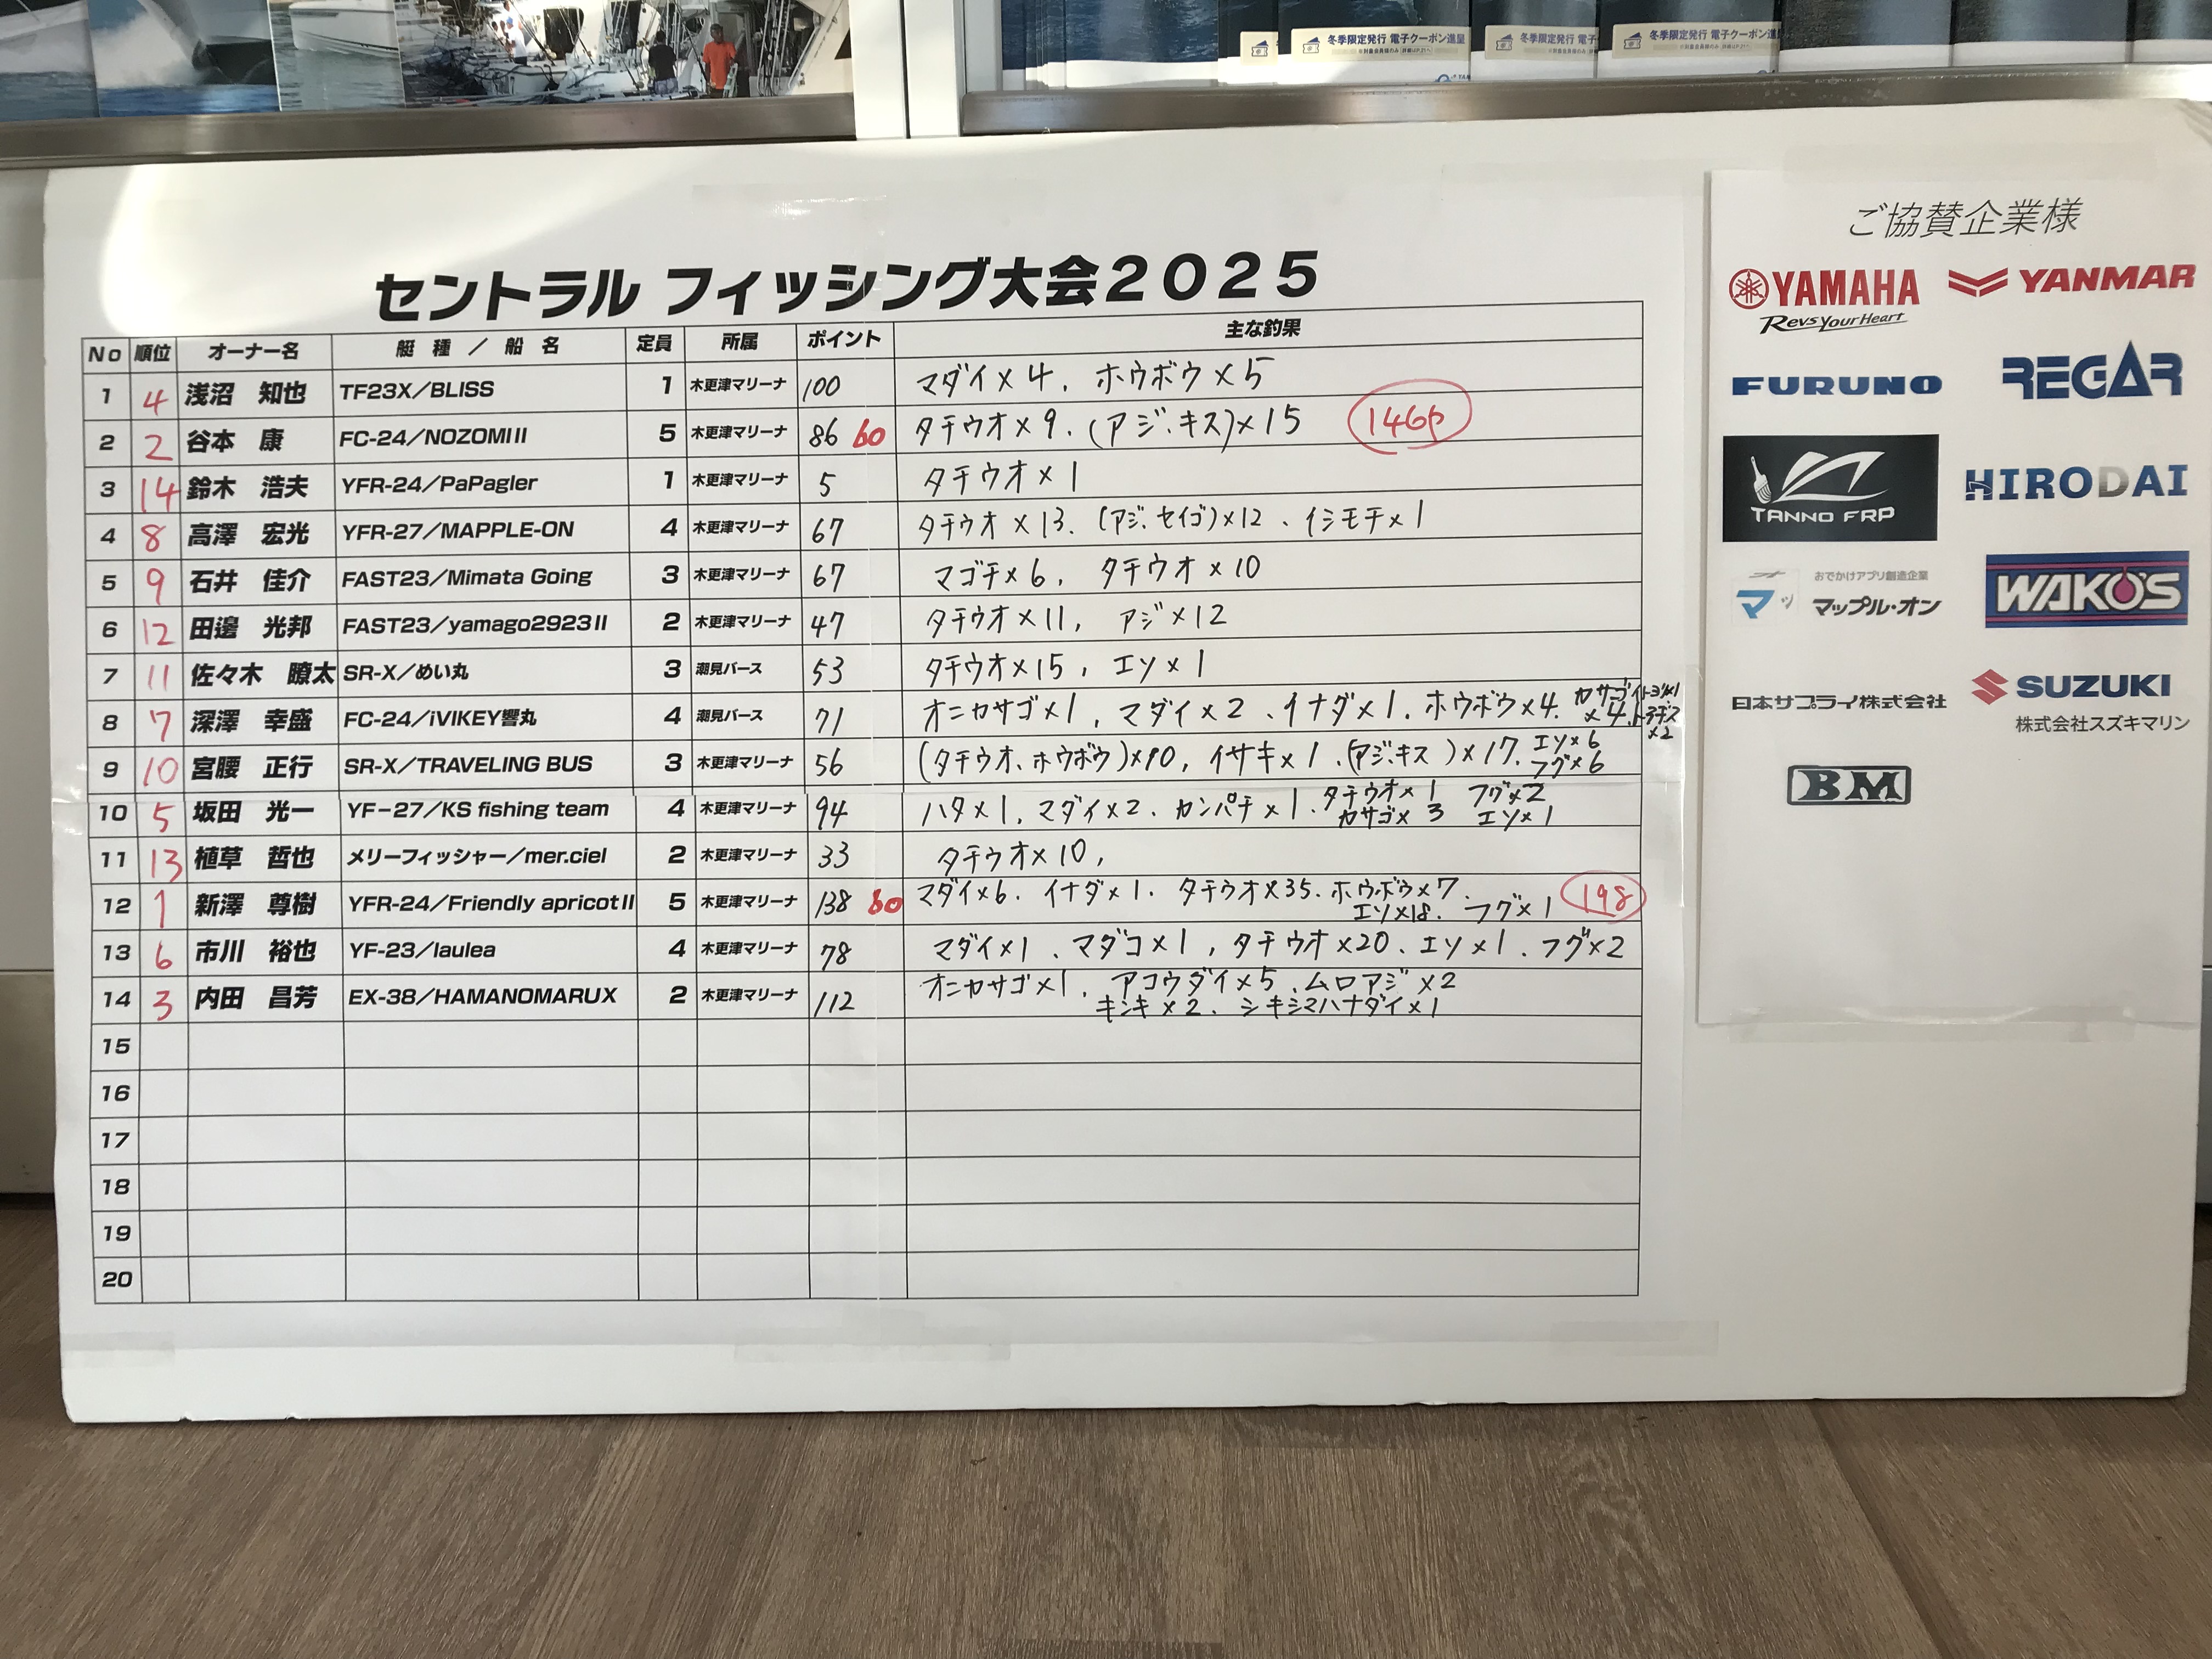 冬季限定発行 電子クーポン進呈
冬季限定発行 電子クーポン
冬季限定発行 電子クーポン進
セントラル フィッシング大会2025
No 順位 オーナー名 艇種／船名 定員 所属 ポイント 主な釣果
1 4 浅沼 知也 TF23X／BLISS 1 木更津マリーナ 100 マダイ×4. ホウボウ×5
2 2 谷本 康 FC-24／NOZOMIII 5 木更津マリーナ 86 60 タチウオ×9. (アジ.キス)×15 146p
3 14 鈴木 浩夫 YFR-24／PaPagler 1 木更津マリーナ 5 タチウオ×1
4 8 高澤 宏光 YFR-27／MAPPLE-ON 4 木更津マリーナ 67 タチウオ×13. (アジ、セイゴ)×12、イシモチ×1
5 9 石井 佳介 FAST23／Mimata Going 3 木更津マリーナ 67 マゴチ×6, タチウオ×10
6 12 田邊 光邦 FAST23／yamago2923II 2 木更津マリーナ 47 タチウオ×11, アジ×12
7 11 佐々木 瞭太 SR-X／めい丸 3 潮見バース 53 タチウオ×15, エソ×1
8 7 深澤 幸盛 FC-24／iVIKEY響丸 4 潮見バース 71 オニカサゴ×1, マダイ×2、イナダ×1. ホウボウ×4. カサゴ×4.
9 10 宮腰 正行 SR-X／TRAVELING BUS 3 木更津マリーナ 56 (タチウオ、ホウボウ)×10, イサキ×1.(アジ.キス)×17. エソ×6 フグ×6
10 5 坂田 光一 YF-27／KS fishing team 4 木更津マリーナ 94 ハタ×1, マダイ×2、カンパチ×1. タチウオ×1 カサゴ×3 フグ×2 エソ×1
11 13 植草 哲也 メリーフィッシャー／mer.ciel 2 木更津マリーナ 33 タチウオ×10,
12 1 新澤 尊樹 YFR-24／Friendly apricotII 5 木更津マリーナ 138 60 マダイ×6. イナダ×1. タチウオ×35. ホウボウ×7. エソ×18. フグ×1 198
13 6 市川 裕也 YF-23／laulea 4 木更津マリーナ 78 マダイ×1、マダコ×1, タチウオ×20、エソ×1. フグ×2
14 3 内田 昌芳 EX-38／HAMANOMARUX 2 木更津マリーナ 112 オニカサゴ×1, アコウダイ×5、ムロアジ×2 キンキ×2. シキシマハナダイ×1
15
16
17
18
19
20
ご協賛企業様
YAMAHA YANMAR
Revs Your Heart
FURUNO REGAR
TANNO FRP HIRODAI
おでかけアプリ創造企業
マップル・オン WAKO'S
日本サプライ株式会社 SUZUKI
株式会社スズキマリン
BM